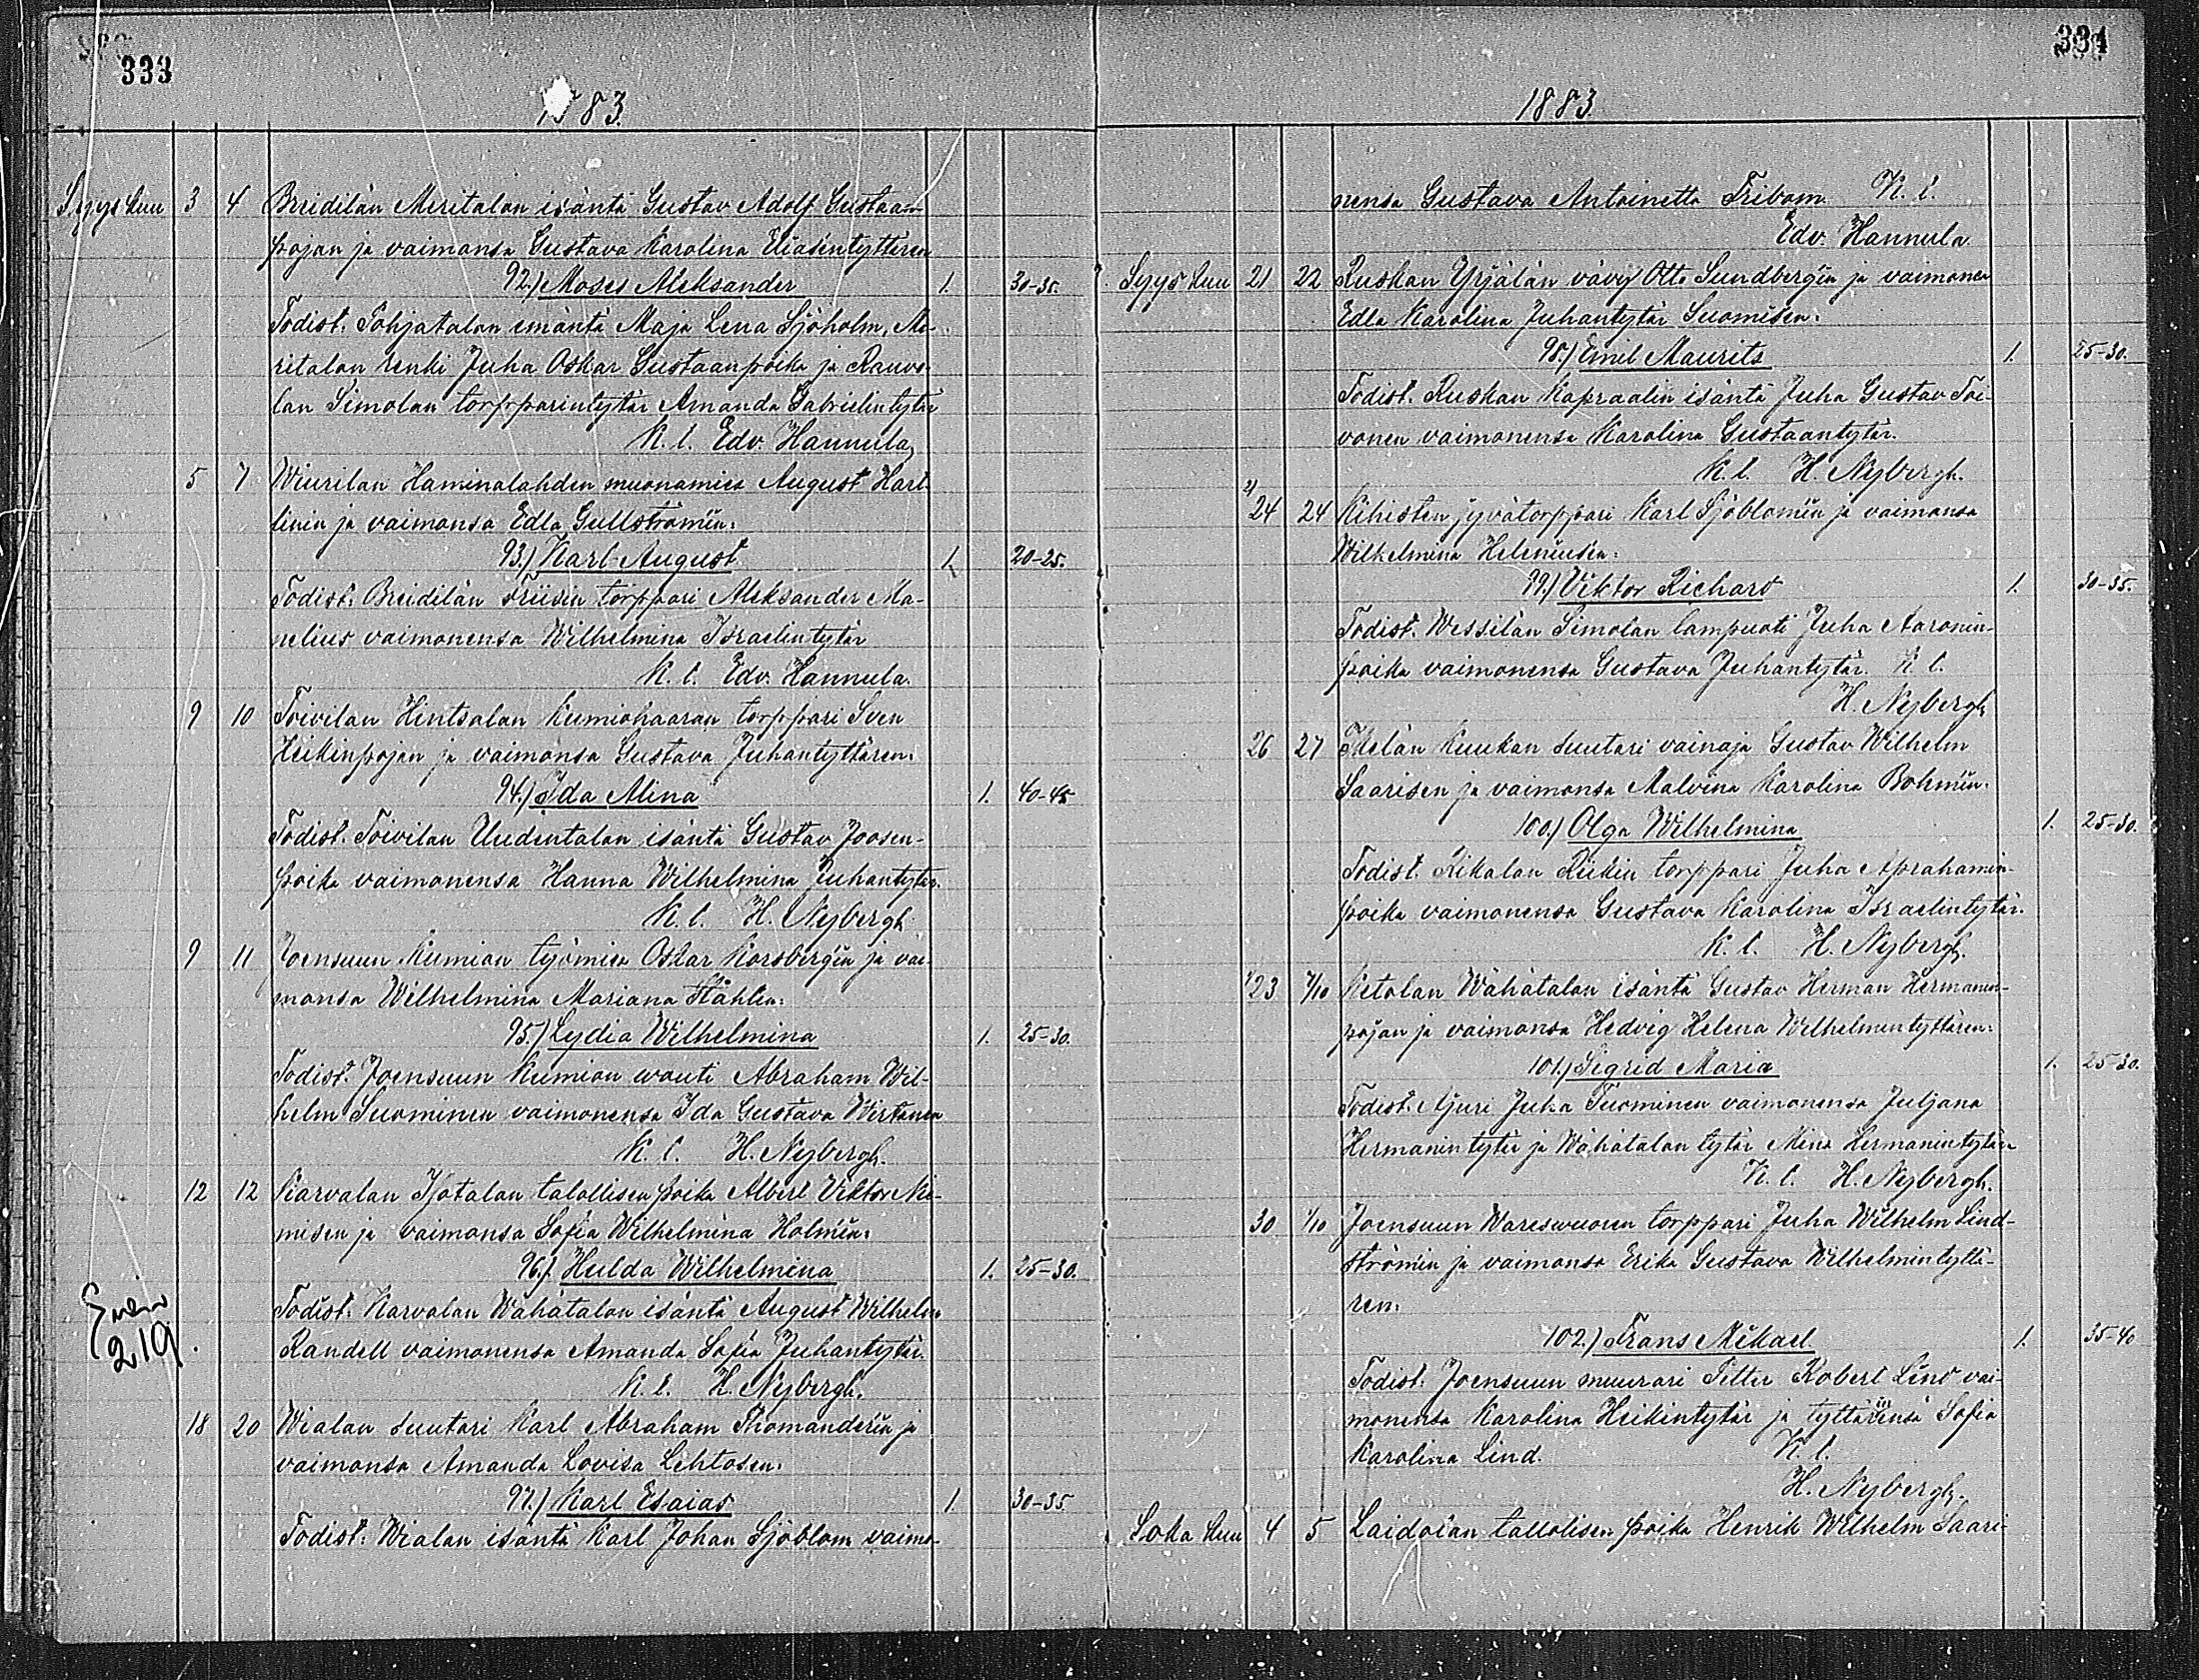 333
1883.
Syyskuu 3 4 Breidilän Meritalon isäntä Gustav Adolf Gustaan-
pojan ja vaimonsa Gustava Karolina Eliasentyttären
92.) Moses Aleksander 1. 30-35.
Todist. Pohjatalon emäntä Maja Lena Sjöholm, Me-
ritalon renki Juha Oskar Gustaanpoika ja Rauvo-
lan Simolan torpparintytär Amanda Gabrielintytär
K. l. Edv. Hannula
5 7 Wiurilan Haminalahden muonamies August Harl-
linin ja vaimonsa Edla Gullströmin:
93.) Karl August 1. 20-25.
Todist: Breidilän Friisin torppari Aleksander Ma-
nelius vaimonensa Wilhelmina Israelintytär
K. l. Edv. Hannula.
9 10 Toivilan Hintsalan Kumiohaaran torppari Sven
Heikinpojan ja vaimonsa Gustava Juhantyttären:
94.) Ida Alina 1. 40-45
Todist. Toivilan Uudentalon isäntä Gustav Joosen-
poika vaimonensa Hanna Wilhelmina Juhantytär.
K. l. H. Nybergh
9 11 Joensuun Kumion työmies Oskar Korsbergin ja vai-
monsa Wilhelmina Mariana Ståhlin:
95.) Lydia Wilhelmina 1. 25-30.
Todist. Joensuun Kumion wouti Abraham Wil-
helm Suominen vaimonensa Ida Gustava Wirtanen
K. l. H. Nybergh.
12 12 Karvalan Isotalon talollisen poika Albert Viktor Nie-
misen ja vaimonsa Sofia Wilhelmina Holmin:
96.) Hulda Wilhelmina 1. 25-30.
Todist: Karvalan Wähätalon isäntä August Wilhelm
Randell vaimonensa Amanda Sofia Juhantytär.
K. l. H. Nybergh.
219.
18 20 Wialan suutari Karl Abraham Thomanderin ja
vaimonsa Amanda Lovisa Lehtosen:
97.) Karl Esaias 1. 30-35
Todist: Wialan isäntä Karl Johan Sjöblom vaimo-
334
1883.
nensa Gustava Antoinetta Tribom. K. l.
Edv. Hannula
Syyskuu 21 22 Ruskan Yrjälän vävy Otto Sundbergin ja vaimonen
Edla Karolina Juhantytär Suomisen:
98.) Emil Maurits 1. 25-30.
Todist. Ruskan Kapraalin isäntä Juha Gustav Toi-
vonen vaimonensa Karolina Gustaantytär.
K. l. H. Nybergh.
24 24 Kihisten jyvätorppari Karl Sjöblomin ja vaimonsa
Wilhelmina Heleniusen:
99.) Viktor Richard 1. 30-35.
Todist. Wessilän Simolan lampuoti Juha Aaronin-
poika vaimonensa Gustava Juhantytär. K. l.
H. Nybergh
26 27 Kuukan suutari vainaja Gustav Wilhelm
Saarisen ja vaimonsa Malvina Karolina Bohmin:
100.) Olga Wilhelmina 1. 25-30.
Todist. Rikalan Riikin torppari Juha Aprahamin-
poika vaimonensa Gustava Karolina Israelintytär.
K. l. H. Nybergh.
23 1/10 Ketolan Wähätalon isäntä Gustav Herman Hermanin-
pojan ja vaimonsa Hedvig Helena Wilhelmintyttären:
101.) Sigrid Maria 1. 25-30.
Todist. Ajuri Juha Tuominen vaimonensa Juljana
Hermanintytär ja Wähätalon tytär Mina Hermanintytär
K. l. H. Nybergh.
30 1/10 Joensuun Wareswuoren torppari Juha Wilhelm Lind-
strömin ja vaimonsa Erika Gustava Wilhelmintyttä-
ren:
102.) Frans Mikael 1. 35-40
Todist. Joensuun muurari Petter Robert Lind vai-
monensa Karolina Heikintytär ja tyttärensä Sofia
Karolina Lind. K. l.
H. Nybergh.
Lokakuu 4 5 Laidoian tallolisen poika Henrik Wilhelm Saari-